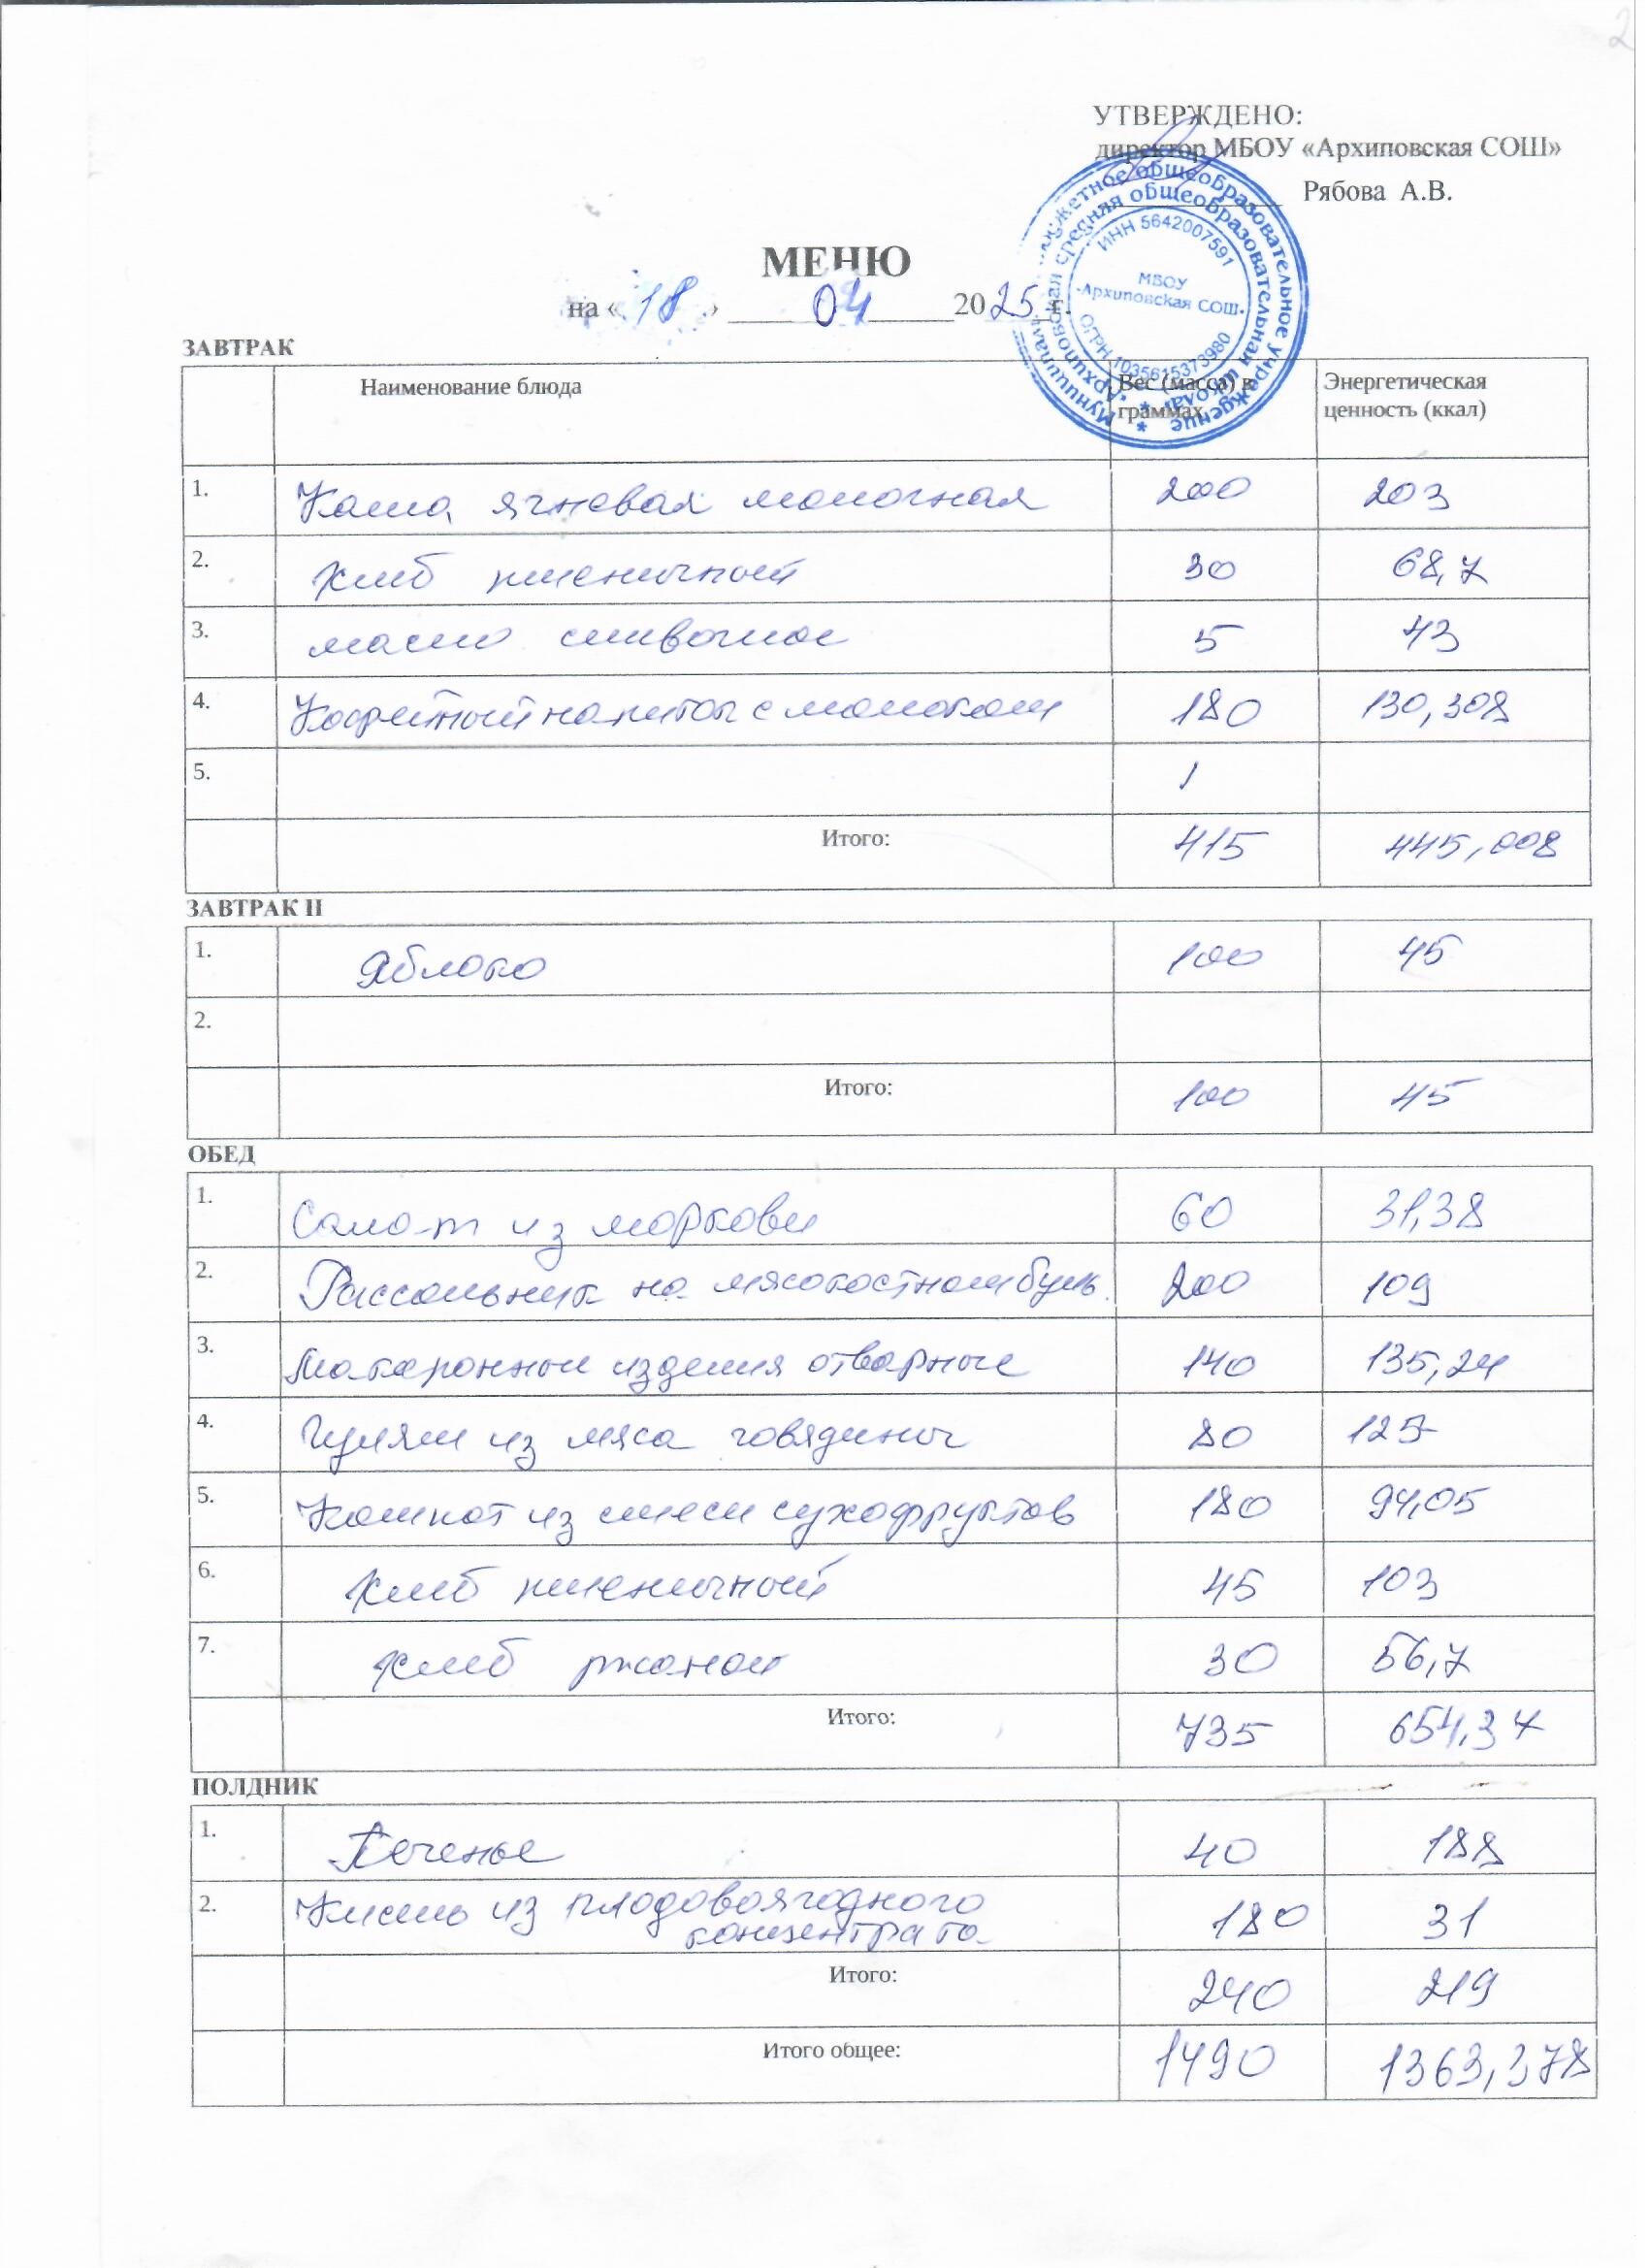 УТВЕРЖДЕНО:
директор МБОУ «Архиповская СОШ»
Рябова А.В.
бюджетное общеобразовательное учреждение
средняя общеобразовательная школа
ИНН 5642007591
МБОУ
«Архиповская СОШ»
ОГРН 1035615373980
МЕНЮ
на «18» 04 2025 г.
ЗАВТРАК
Наименование блюда Вес (масса) в граммах Энергетическая ценность (ккал)
1. Каша ячневая молочная 200 203
2. Хлеб пшеничный 30 68,7
3. масло сливочное 5 43
4. Кофейный напиток с молоком 180 130,308
5.
Итого: 415 445,008
ЗАВТРАК II
1. Яблоко 100 45
2.
Итого: 100 45
ОБЕД
1. Салат из моркови 60 31,38
2. Рассольник на мясокостном буль  200 109
3. Макаронные изделия отварные 140 135,24
4. Гуляш из мяса говядины 80 125
5. Компот из смеси сухофруктов 180 94,05
6. Хлеб пшеничный 45 103
7. Хлеб ржаной 30 56,7
Итого: 735 654,37
ПОЛДНИК
1. Печенье 40 188
2. Кисель из плодовоягодного
концентрата 180 31
Итого: 240 219
Итого общее: 1490 1363,378